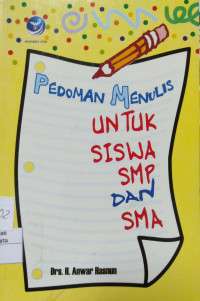 PEDOMAN MENULIS
UNTUK
SISWA
SMP
DAN
SMA
Drs. H. Anwar Hasnun